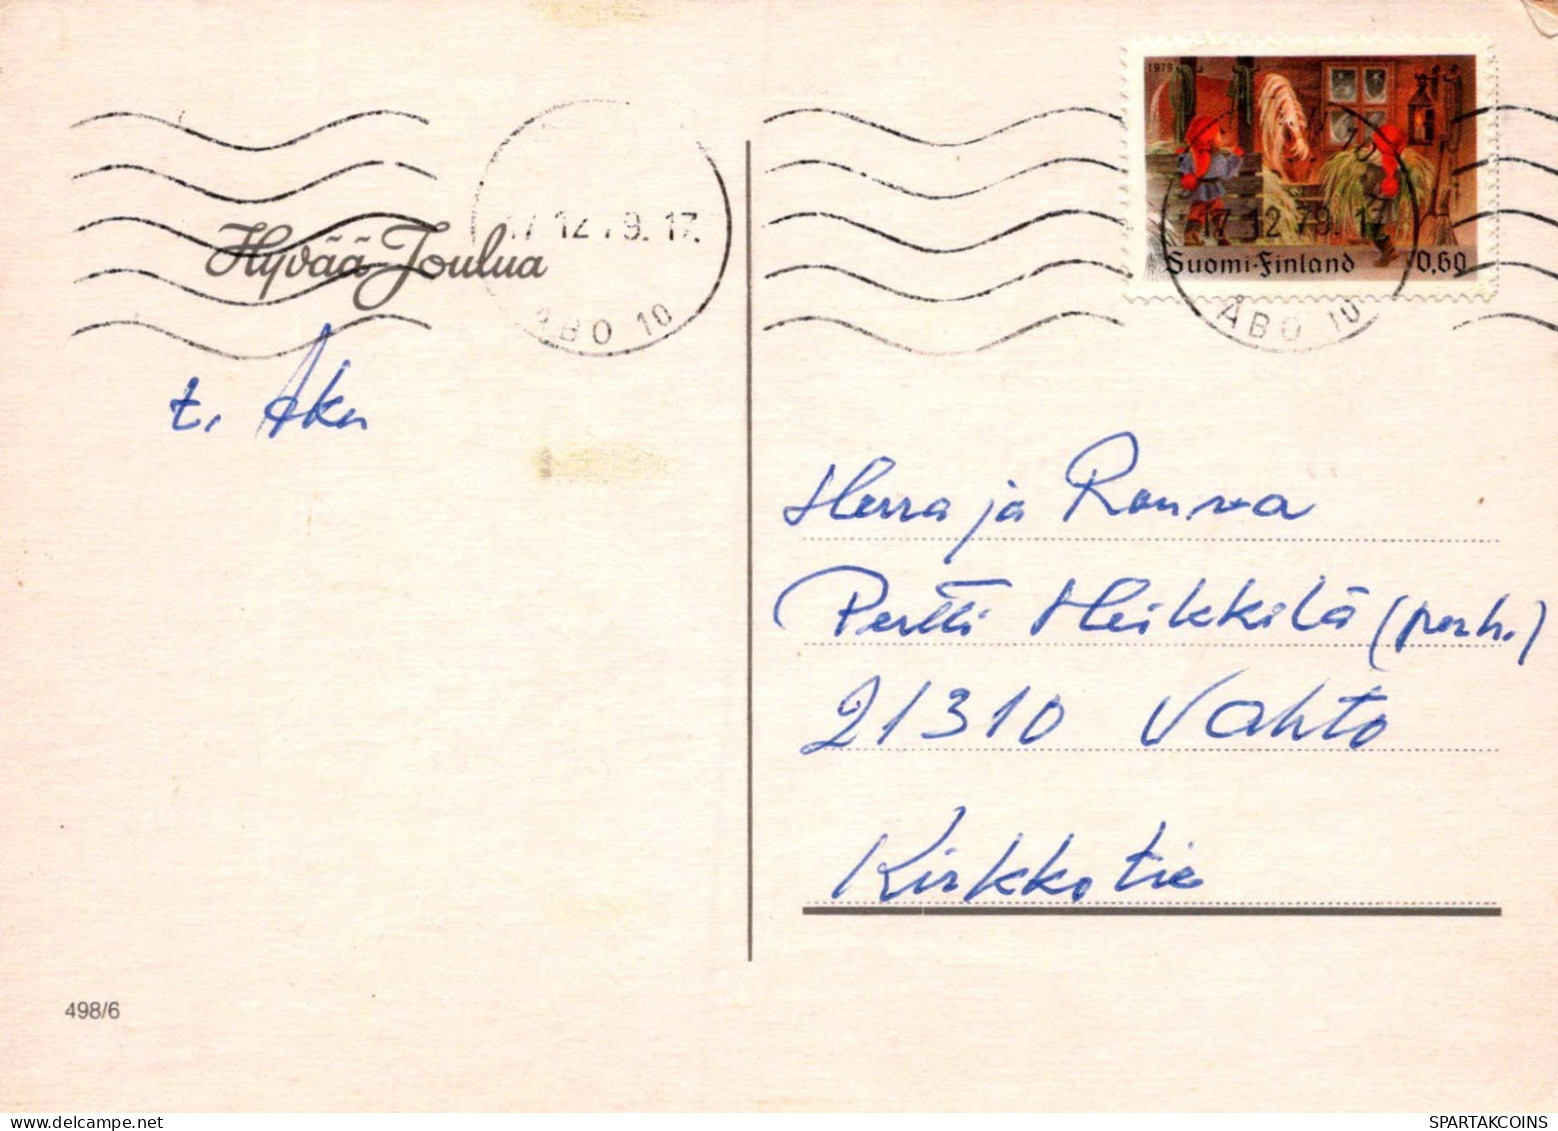 1979
Suomi-Finland 0,60
17 12 79. 17.
ÅBO 10
17 12 79. 17.
ÅBO 10
Hyvää Joulua
t. Aku
Herra ja Rouva
Pertti Heikkilä (perh.)
21310 Vahto
Kirkkotie
498/6
SPARTAKCOINS